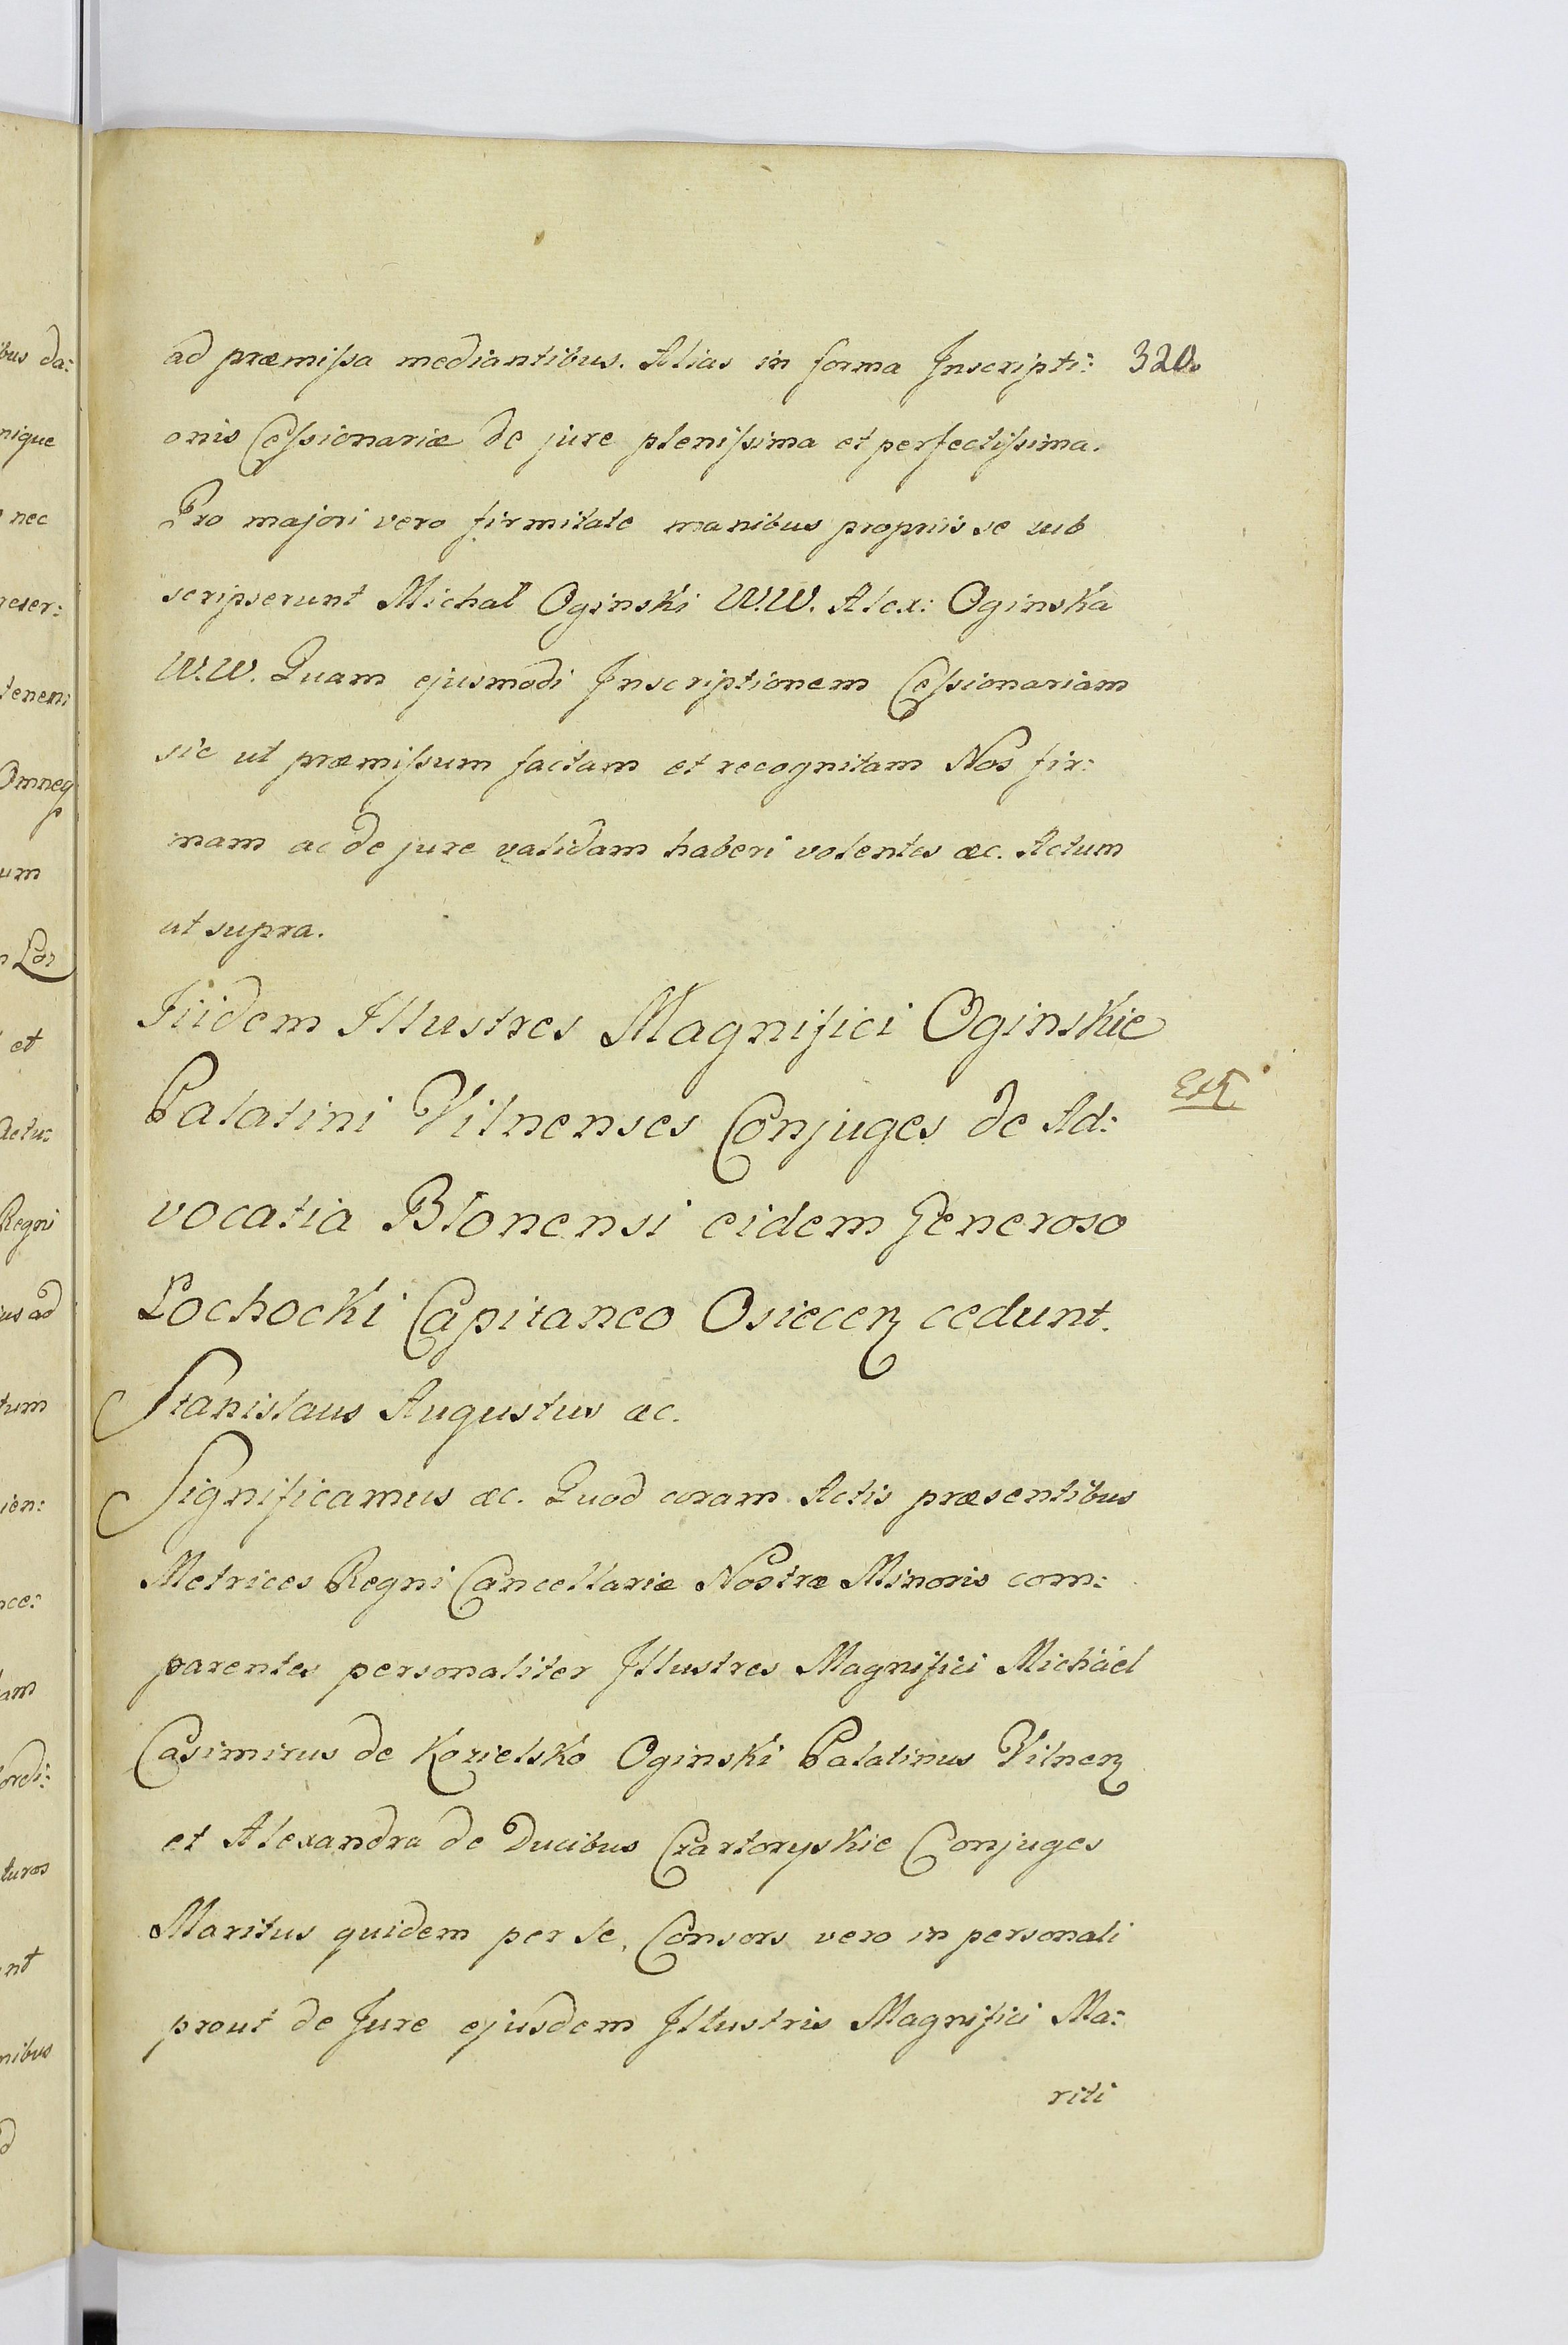 ad præmissa mediantibus. Alias in forma Inscripti: 320.
onis Cessionariæ de jure plenissima et perfectissima.
Pro majori vero firmitate manibus propriis se sub
scripserunt Michał Oginski W.W. Alex: Oginska
W.W. Quam ejusmodi Inscriptionem Cessionariam
sic ut præmissum factam et recognitam Nos fir:
mam ac de jure validam haberi volentes æc. Actum
ut supra.
Iiidem Illustres Magnifici Oginskie
Palatini Vilnenses Conjuges de Ad:
vocatia Blonensi eidem Generoso
Lochocki Capitaneo Osiecen cedunt.
Stanislaus Augustus æc.
Significamus æc. Quod coram Actis præsentibus
Metrices Regni Cancellariæ Nostræ Minoris com:
parentes personaliter Illustres Magnifici Michäel
Casimirus de Kozielsko Oginski Palatinus Vilnen
et Alexandra de Ducibus Czartoryskie Conjuges
Maritus quidem per se, Consors vero in personali
prout de Jure ejusdem Illustris Magnifici Ma:
riti
bus da:
nique
nec
tenen:
Omneq
um
et
Actu:
Regni
ius ad
tum
ien:
nce:
ordi:
turos
nt
nibus